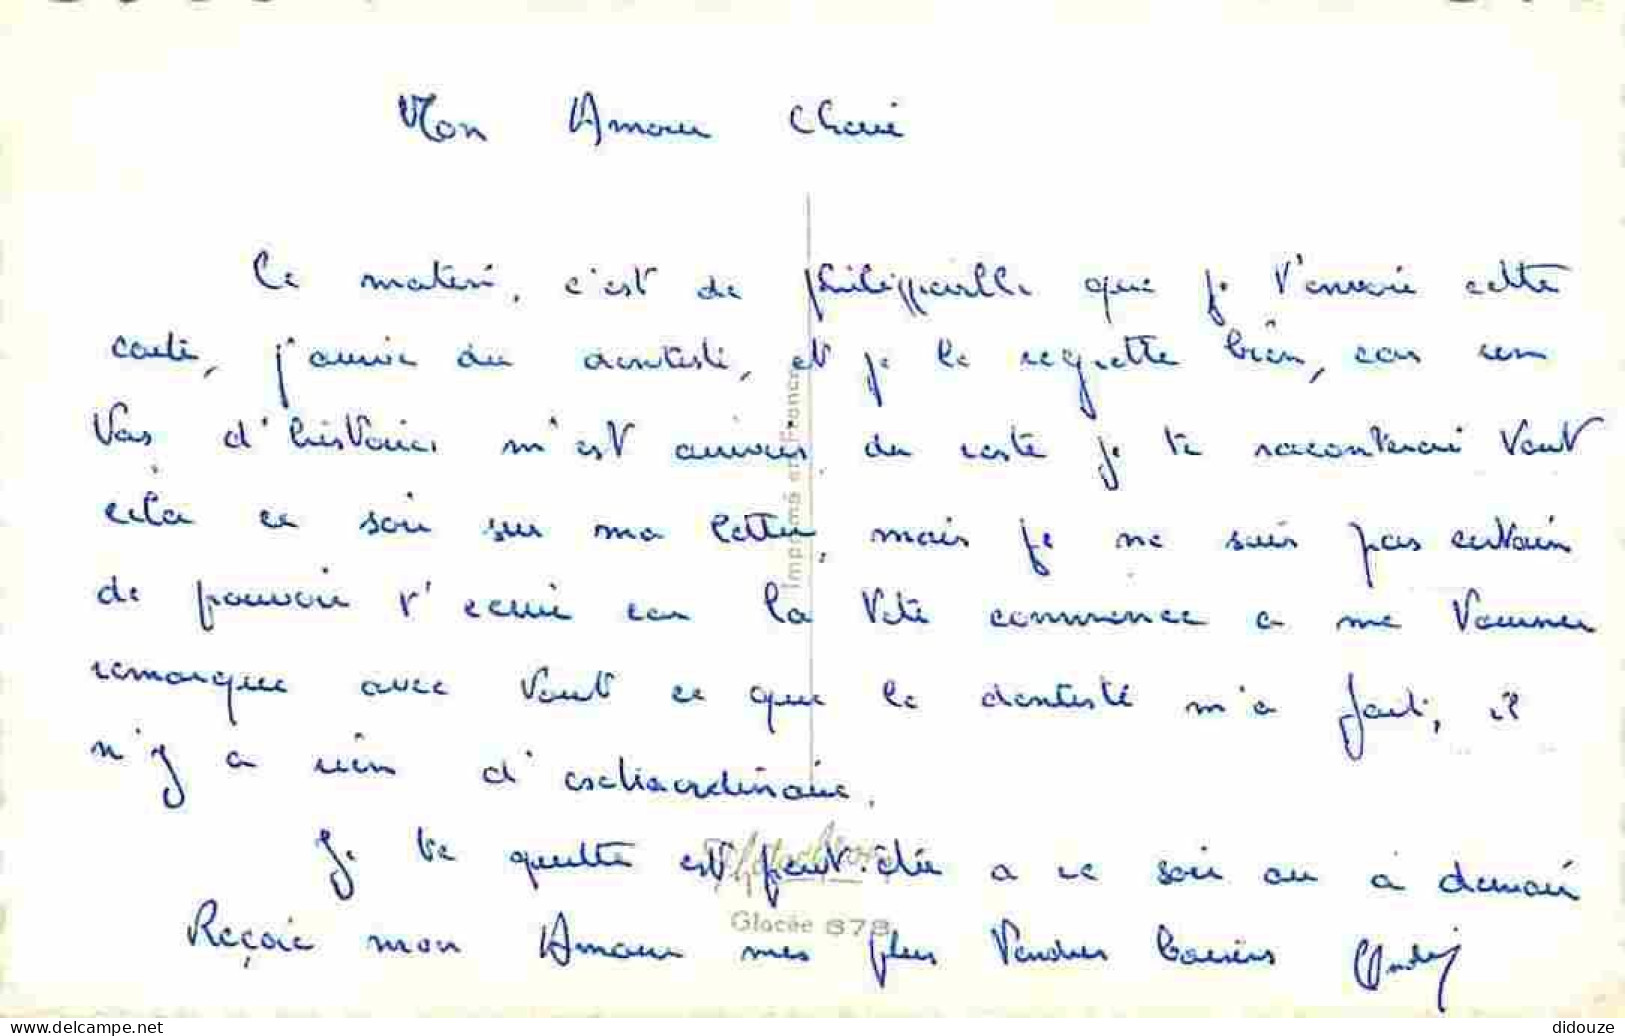 Mon Amour Cherie
Ce matin, c'est de philippeville que je t'envoie cette
carte, j'arrive du dentiste, et je le regrette bien, car un
tas d'histoires m'est arrivés du reste je te raconterai tout
cela ce soir sur ma lettre, mais je ne suis pas certain
de pouvoir t'ecrire car la tete commence a me tourner
remarque avec tout ce que le dentiste m'a fait, il
n'y a rien d'eschaordinaire.
Je te quitte est peut être a ce soir ou a demain
Reçoie mon Amour mes plus tendres baisers André
Imprimé en France
Glacée 878
didouze
delcampe.net